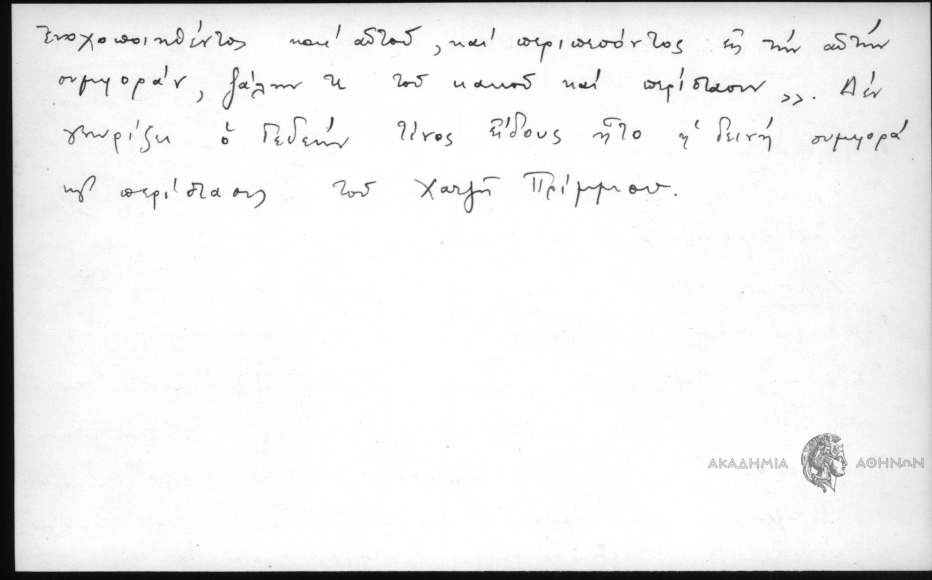 ἐνοχοποιηθέντος κακεῖ αὐτοῦ, καὶ περιπεσόντος εἰς τὴν αὐτὴν
συμφοράν, ζάλην τε τοῦ κακοῦ καὶ περίστασιν». Δὲν
γνωρίζει ὁ Γεδεὼν τίνος εἴδους ἦτο ἡ δεινὴ συμφορά
καὶ περίστασις τοῦ Χατζῆ Πρίμμου.
ΑΚΑΔΗΜΙΑ ΑΘΗΝΩΝ